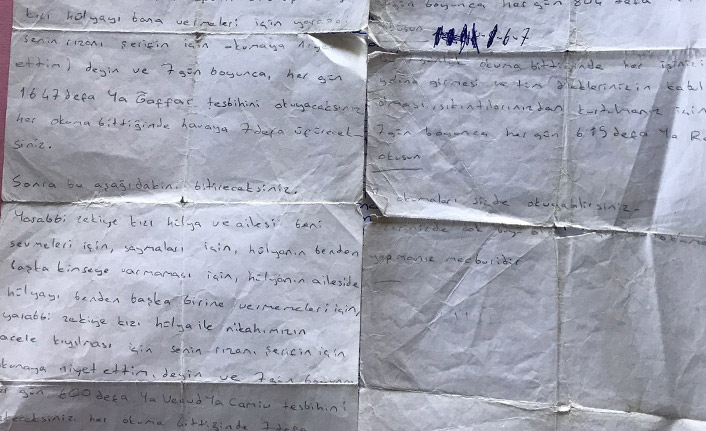 kızı hülyayı bana vermeleri için yarabbi
senin rızanı şerifin için okumaya niyet
ettim) deyin ve 7 gün boyunca, her gün
1647 defa Ya Gaffar tesbihini okuyacaksınız
her okuma bittiğinde havaya 7 defa üfürecek-
siniz.
Sonra bu aşağıdakini bitireceksiniz.
Yarabbi zekiye kızı hülya ve ailesi beni
sevmeleri için, saymaları için, hülyanın benden
başka kimseye varmaması için, hülyanın aileside
hülyayı benden başka birine vermemeleri için,
yarabbi zekiye kızı hülya ile nikahımızın
acele kıyılması için senin rızanı şerifin için
okumaya niyet ettim, deyin ve 7 gün boyunca
her gün 600 defa Ya Vedud Ya Camiu tesbihini
her okuma bittiğinde 7 defa
gün boyunca her gün 804 defa
okusun 1-6-7
okuma bittiğinde her işinizi
girmesi ve tüm dileklerinizin kabul
olması, sıkıntılarınızdan kurtulmanız için
7 gün boyunca her gün 615 defa Ya
okusun
okumaları sizde okuyabilirsiniz-
yapmanız mecburidir